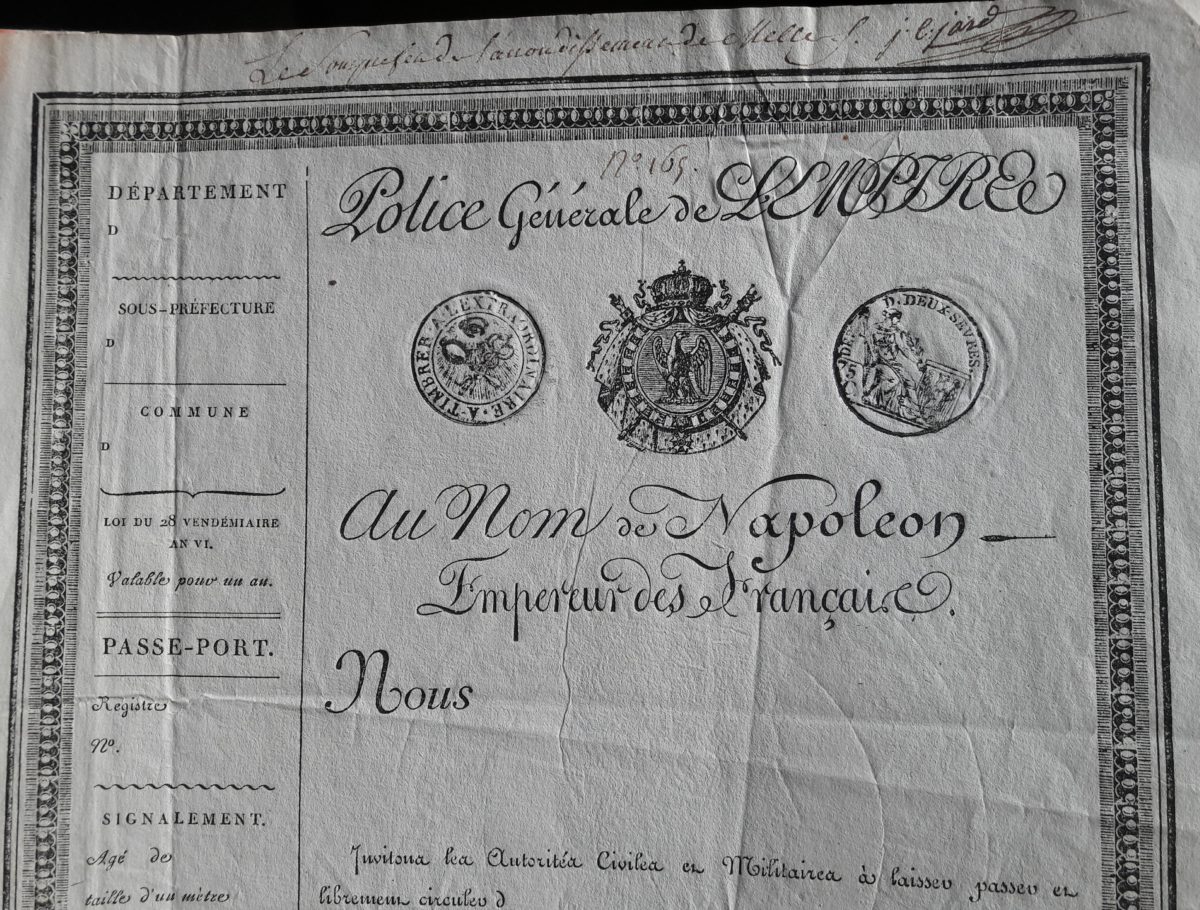 de l'arrondissement de Melle
Nº. 165.
DÉPARTEMENT
D
SOUS-PRÉFECTURE
D
COMMUNE
D
LOI DU 28 VENDÉMIAIRE
AN VI.
Valable pour un an.
PASSE-PORT.
Registre
Nº.
SIGNALEMENT.
Agé de
taille d'un mètre
Police Générale de L'EMPIRE
A TIMBRER A L'EXTRAORDINAIRE
D. DEUX-SEVRES.
Au Nom de Napoleon
Empereur des Français.
Nous
Invitons les Autorités Civiles et Militaires à laisser passer et
librement circuler d